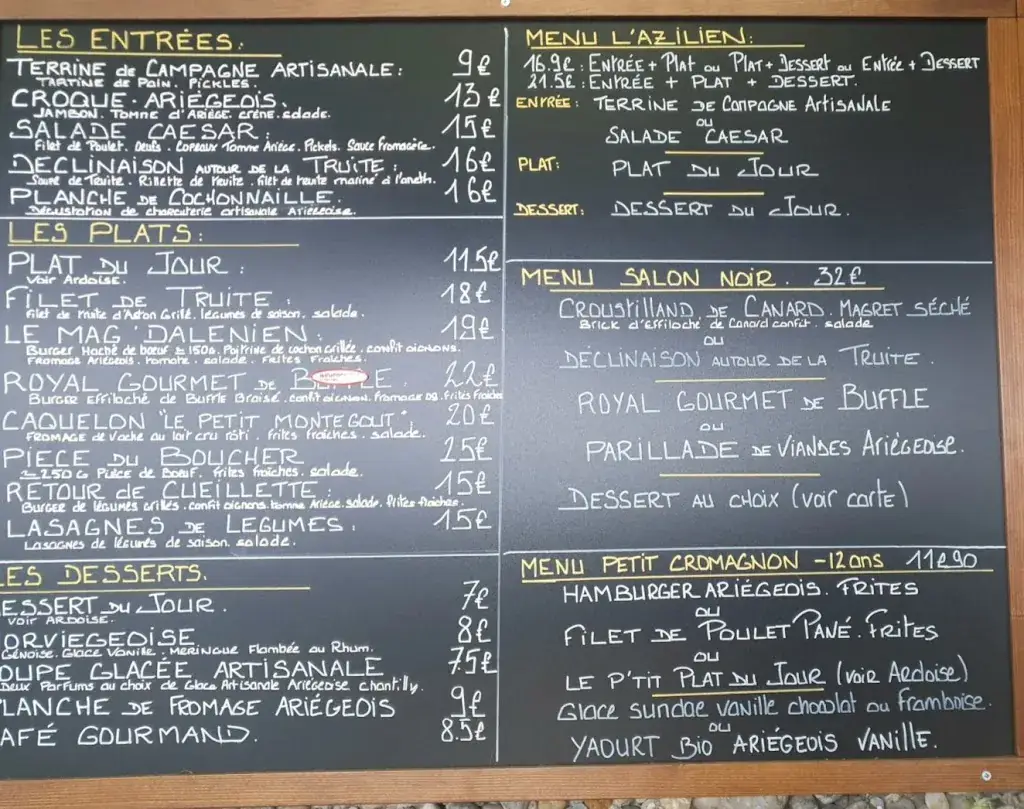 LES ENTRÉES:
TERRINE de CAMPAGNE ARTISANALE: 9€
TARTINE de Pain. Pickles.
CROQUE. ARIÉGEOIS. 13€
JAMBON. Tomme d'Ariège. crème. salade.
SALADE CAESAR: 15€
Filet de Poulet. Oeufs. Copeaux Tomme Ariège. Pickels. Sauce fromagère.
DECLINAISON AUTOUR DE LA TRUITE: 16€
de Truite. Rillette de truite. filet de truite mariné à l'aneth.
PLANCHE DE COCHONNAILLE. 16€
Dégustation de charcuterie artisanale Ariégeoise.
LES PLATS:
PLAT DU JOUR: 11.5€
Voir Ardoise.
FILET DE TRUITE: 18€
filet de truite d'Aston Grillé. légumes de saison. salade.
LE MAG'DALENIEN: 19€
Burger Haché de boeuf ± 150g. Poitrine de cochon grillée. confit oignons.
FROMAGE Ariégeois. Tomate. salade. Frites Fraîches.
ROYAL GOURMET DE B LE. 22€
BURGER Effiloché de Buffle Braisé. confit oignon. fromage. Frites Fraiches
CAQUELON "LE PETIT MONTEGOUT". 20€
FROMAGE de Vache au lait cru rôti. frites fraîches. salade.
PIECE DU BOUCHER 25€
± 250 G Pièce de Boeuf. frites fraîches. salade.
RETOUR de CUEILLETTE. 15€
Burger de légumes grillés. confit oignons. tomme Ariège. salade. frites fraîches.
LASAGNES DE LEGUMES. 15€
Lasagnes de légumes de saison. salade.
LES DESSERTS.
ESSERT DU JOUR. 7€
VOIR ARDOISE.
ORVIEGEOISE 8€
GÉNOISE. Glace Vanille. MERINGUE Flambée au Rhum.
OUPE GLACÉE ARTISANALE 7.5€
Deux Parfums au choix de Glace Artisanale Ariégeoise. chantilly.
LANCHE DE FROMAGE ARIÉGEOIS 9€
AFÉ GOURMAND. 8.5€
MENU L'AZILIEN:
16.9€: ENTRÉE + Plat ou Plat + DESSERT ou Entrée + DESSERT
21.5€: ENTRÉE + PLAT + DESSERT.
ENTRÉE: TERRINE DE CAMPAGNE ARTISANALE
ou
SALADE CAESAR
PLAT: PLAT DU JOUR
DESSERT: DESSERT DU JOUR.
MENU SALON NOIR. 32€
CROUSTILLAND DE CANARD. MAGRET SÉCHÉ
BRICK d'effiloché de Canard confit. salade
ou
DÉCLINAISON AUTOUR DE LA TRUITE.
ROYAL GOURMET DE BUFFLE
ou
PARILLADE DE VIANDES ARIÉGEOISE.
DESSERT AU CHOIX (voir carte)
MENU PETIT CROMAGNON -12ans 11€90
HAMBURGER ARIÉGEOIS. FRITES
ou
FILET DE POULET PANÉ. FRITES
ou
LE P'TIT PLAT DU JOUR (voir Ardoise)
Glace sundae vanille chocolat ou framboise.
ou
YAOURT Bio ARIÉGEOIS VANILLE.